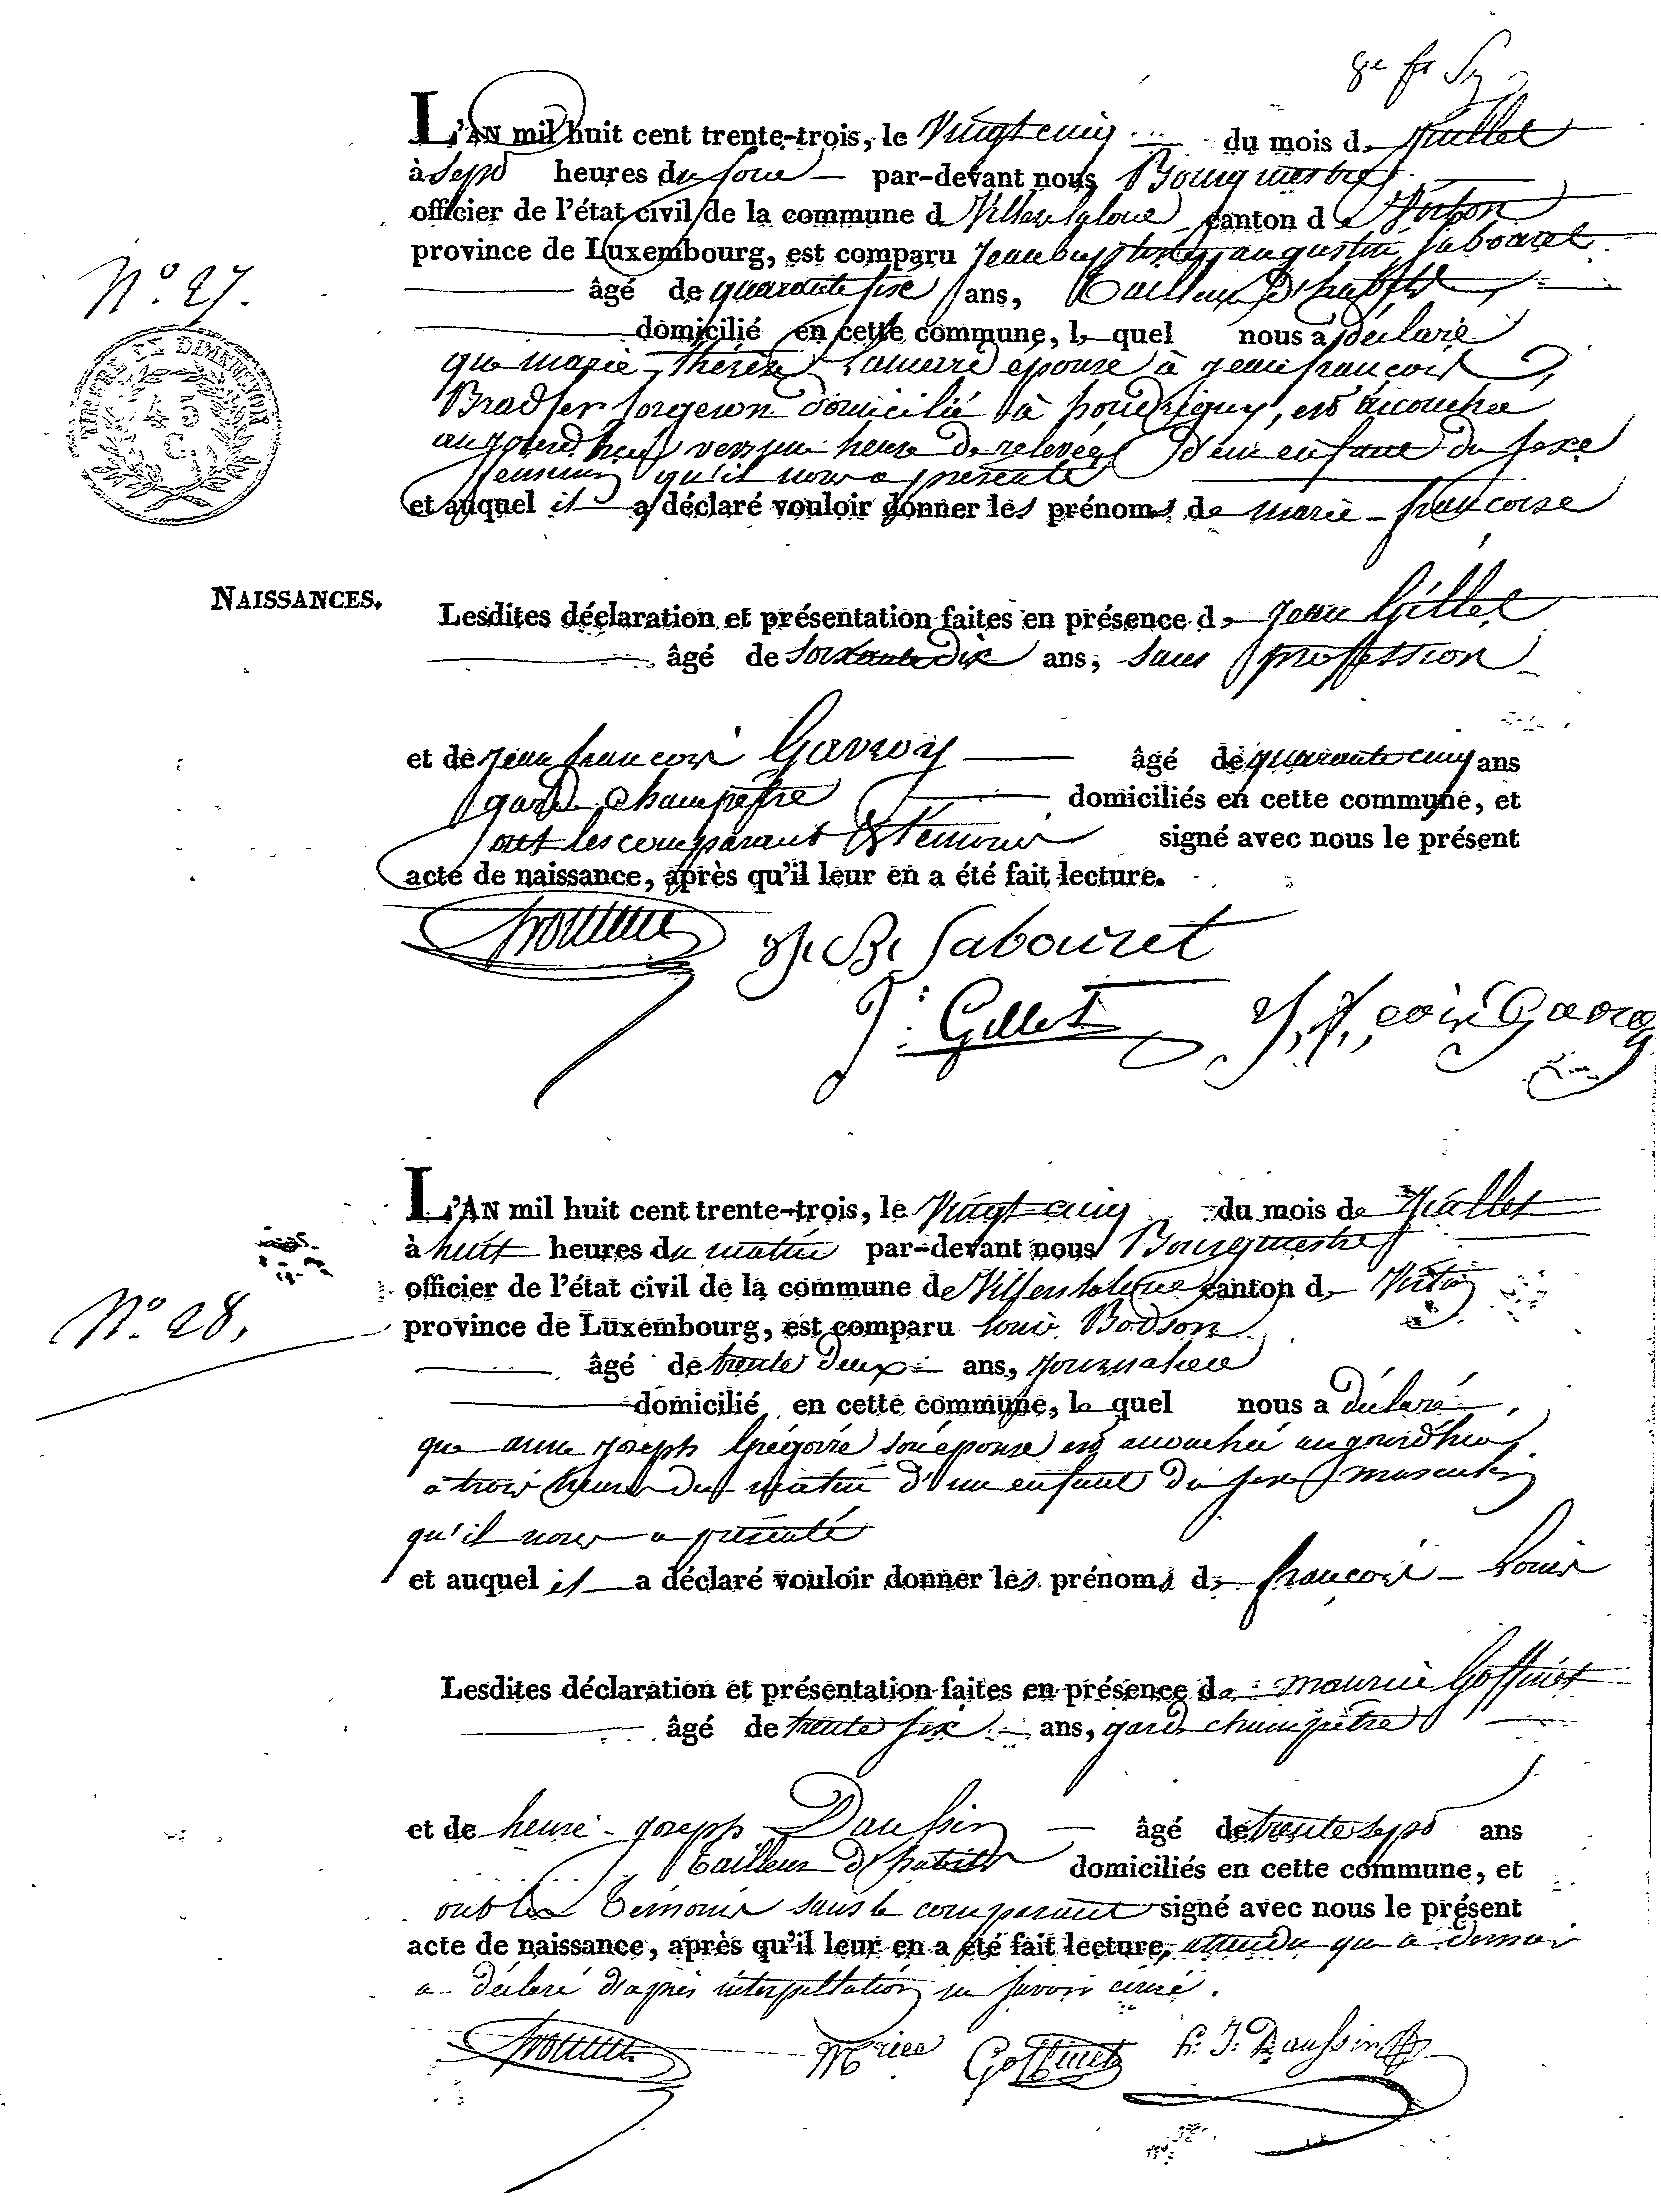 8e ft
L'AN mil huit cent trente-trois, le Vingt cinq du mois de Juillet
à sept heures du soir par-devant nous Bourgmestre
officier de l'état civil de la commune de Villers la loue canton de Virton
province de Luxembourg, est comparu Jean baptiste augustin Sabouret
N.º 27.
âgé de quarante six ans, tailleur d'habits
domicilié en cette commune, lequel nous a déclaré
TIMBRE DE DIMENSION
45 C.
que marie thérèse Lamerre épouse à jean françois
Bradfer forgeron domicilié à houdrigny, est accouchée
aujourd'hui vers une heure de relevée d'un enfant du sexe
féminin qu'il nous a présenté
et auquel il a déclaré vouloir donner les prénoms de marie - françoise
NAISSANCES.
Lesdites déclaration et présentation faites en présence de Jean Gillet
âgé de soixante dix ans, sans profession
et de jean françois Gavroy âgé de quarante cinq ans
garde champêtre domiciliés en cette commune, et
ont les comparant et témoins signé avec nous le présent
acte de naissance, après qu'il leur en a été fait lecture.
J. B. Sabouret
J. Gillet J. f. çois Gavroy
L'AN mil huit cent trente-trois, le Vingt cinq du mois de Juillet
à huit heures du matin par-devant nous Bourgmestre
officier de l'état civil de la commune de Villers la loue canton de Virton
N.º 28.
province de Luxembourg, est comparu louis Bodson
âgé de trente deux ans, journalier
domicilié en cette commune, lequel nous a déclaré
que anne joseph Grégoire son épouse est accouchée aujourd'hui
à trois heures du matin d'un enfant du sexe masculin
qu'il nous a présenté
et auquel il a déclaré vouloir donner les prénoms de françois - Louis
Lesdites déclaration et présentation faites en présence de maurice Goffinet
âgé de trente six ans, garde champêtre
et de henri - joseph Daussin âgé de trente sept ans
tailleur d'habits domiciliés en cette commune, et
ont les témoins sans le comparant signé avec nous le présent
acte de naissance, après qu'il leur en a été fait lecture, attendu que ce dernier
a déclaré d'après interpellation ne savoir écrire.
Mrice Goffinet h. J. Daussin